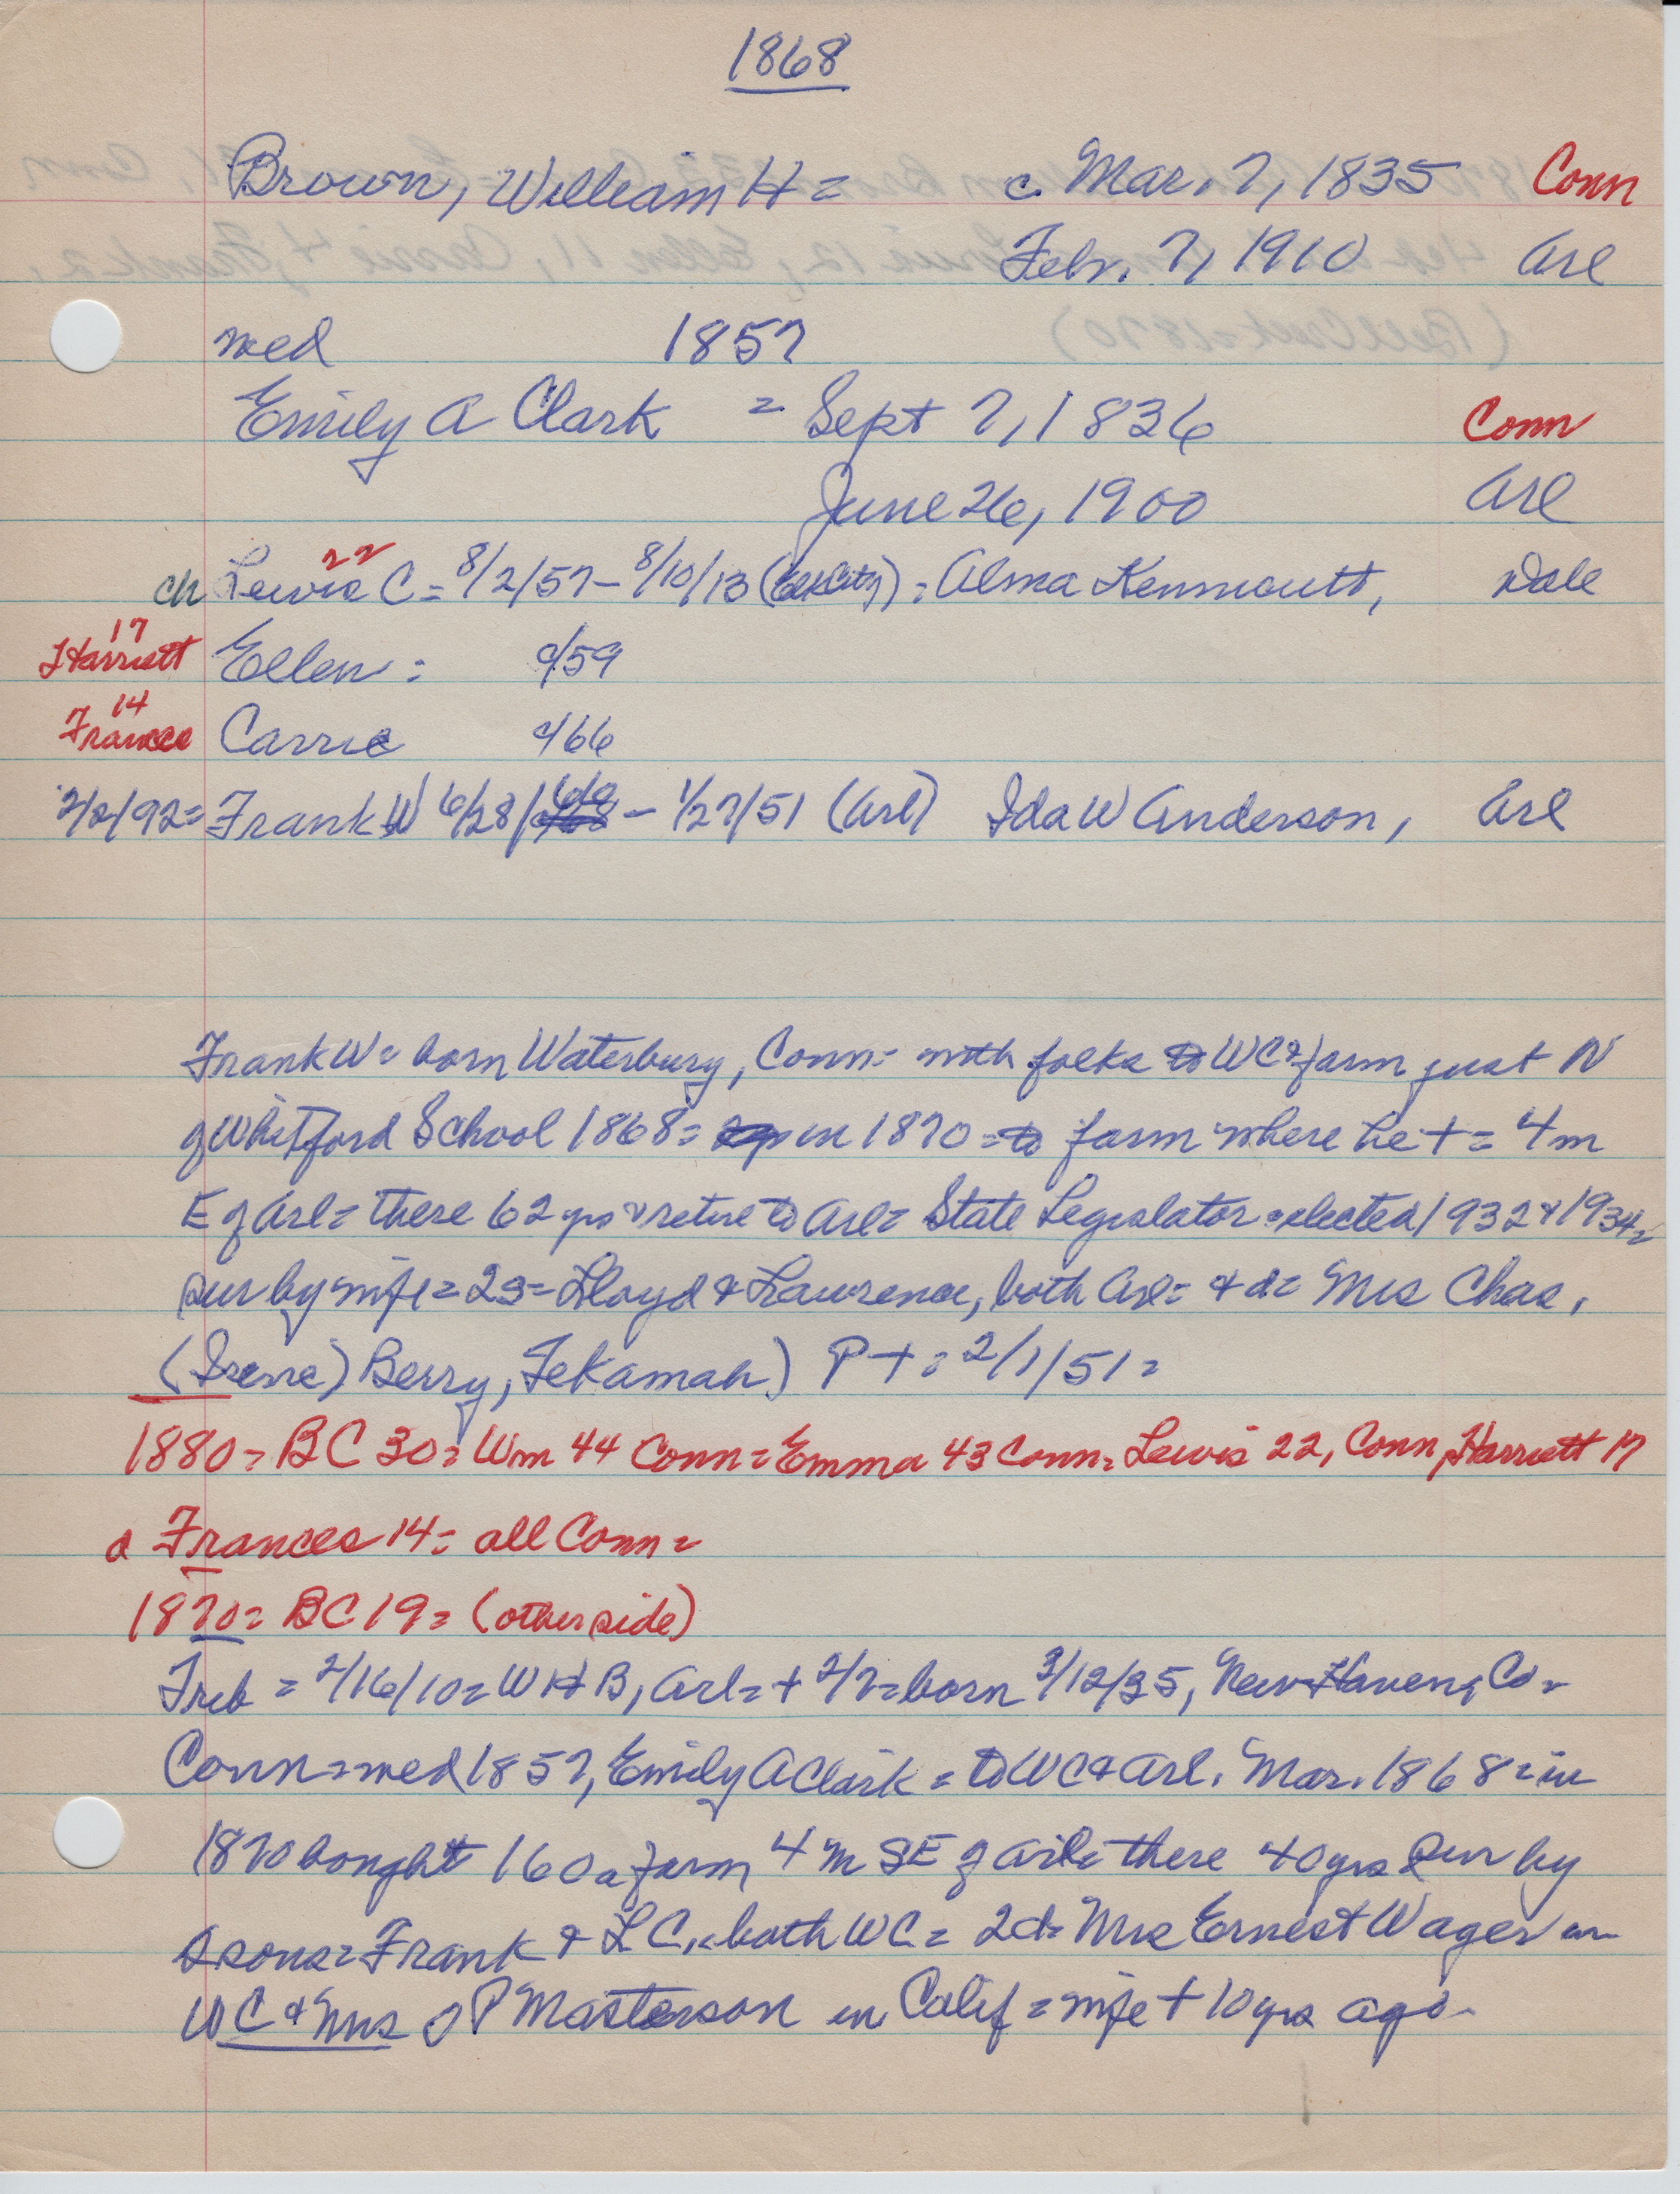 1868
Brown, William H = c. Mar. 7, 1835 Conn
Febr. 7, 1910 Arl
med 1857
Emily A Clark = Sept 7, 1836 Conn
June 26, 1900 Arl
22
ch Lewis C = 8/2/57 - 8/10/13 (Elk City) = Alma Kenmoutt, Wale
17
Harriett Ellen = c/59
14
Frances Carrie c/66
2/2/92 = Frank W 6/28/66 - 1/27/51 (Arl) Ida W Anderson, Arl
Frank W = born Waterbury, Conn = with folks to WC = farm just N
of Whitford School 1868 = in 1870 = to farm where he + = 4 m
E of Arl = there 62 yrs & retire to Arl = State Legislator = elected 1932 & 1934 =
sur by wife = 2s = Lloyd & Lawrence, both Arl = & d = Mrs Chas.
(Irene) Berry, Tekamah) P + = 2/1/51 =
1880 = BC 30 = Wm 44 Conn = Emma 43 Conn = Lewis 22, Conn, Harriett 17
& Frances 14 = all Conn =
1870 = BC 19 = (other side)
Trib = 2/16/10 = W H B, Arl = + 2/7 = born 3/12/35, New Haven, Co =
Conn = med 1857, Emily A Clark = to WC & Arl. Mar. 1868 = in
1870 bought 160 a farm 4 m SE of Arl = there 40 yrs Sur by
2 sons = Frank & L C, both WC = 2d = Mrs Ernest Wager in
WC & Mrs O P Masterson in Calif = wife + 10 yrs ago -